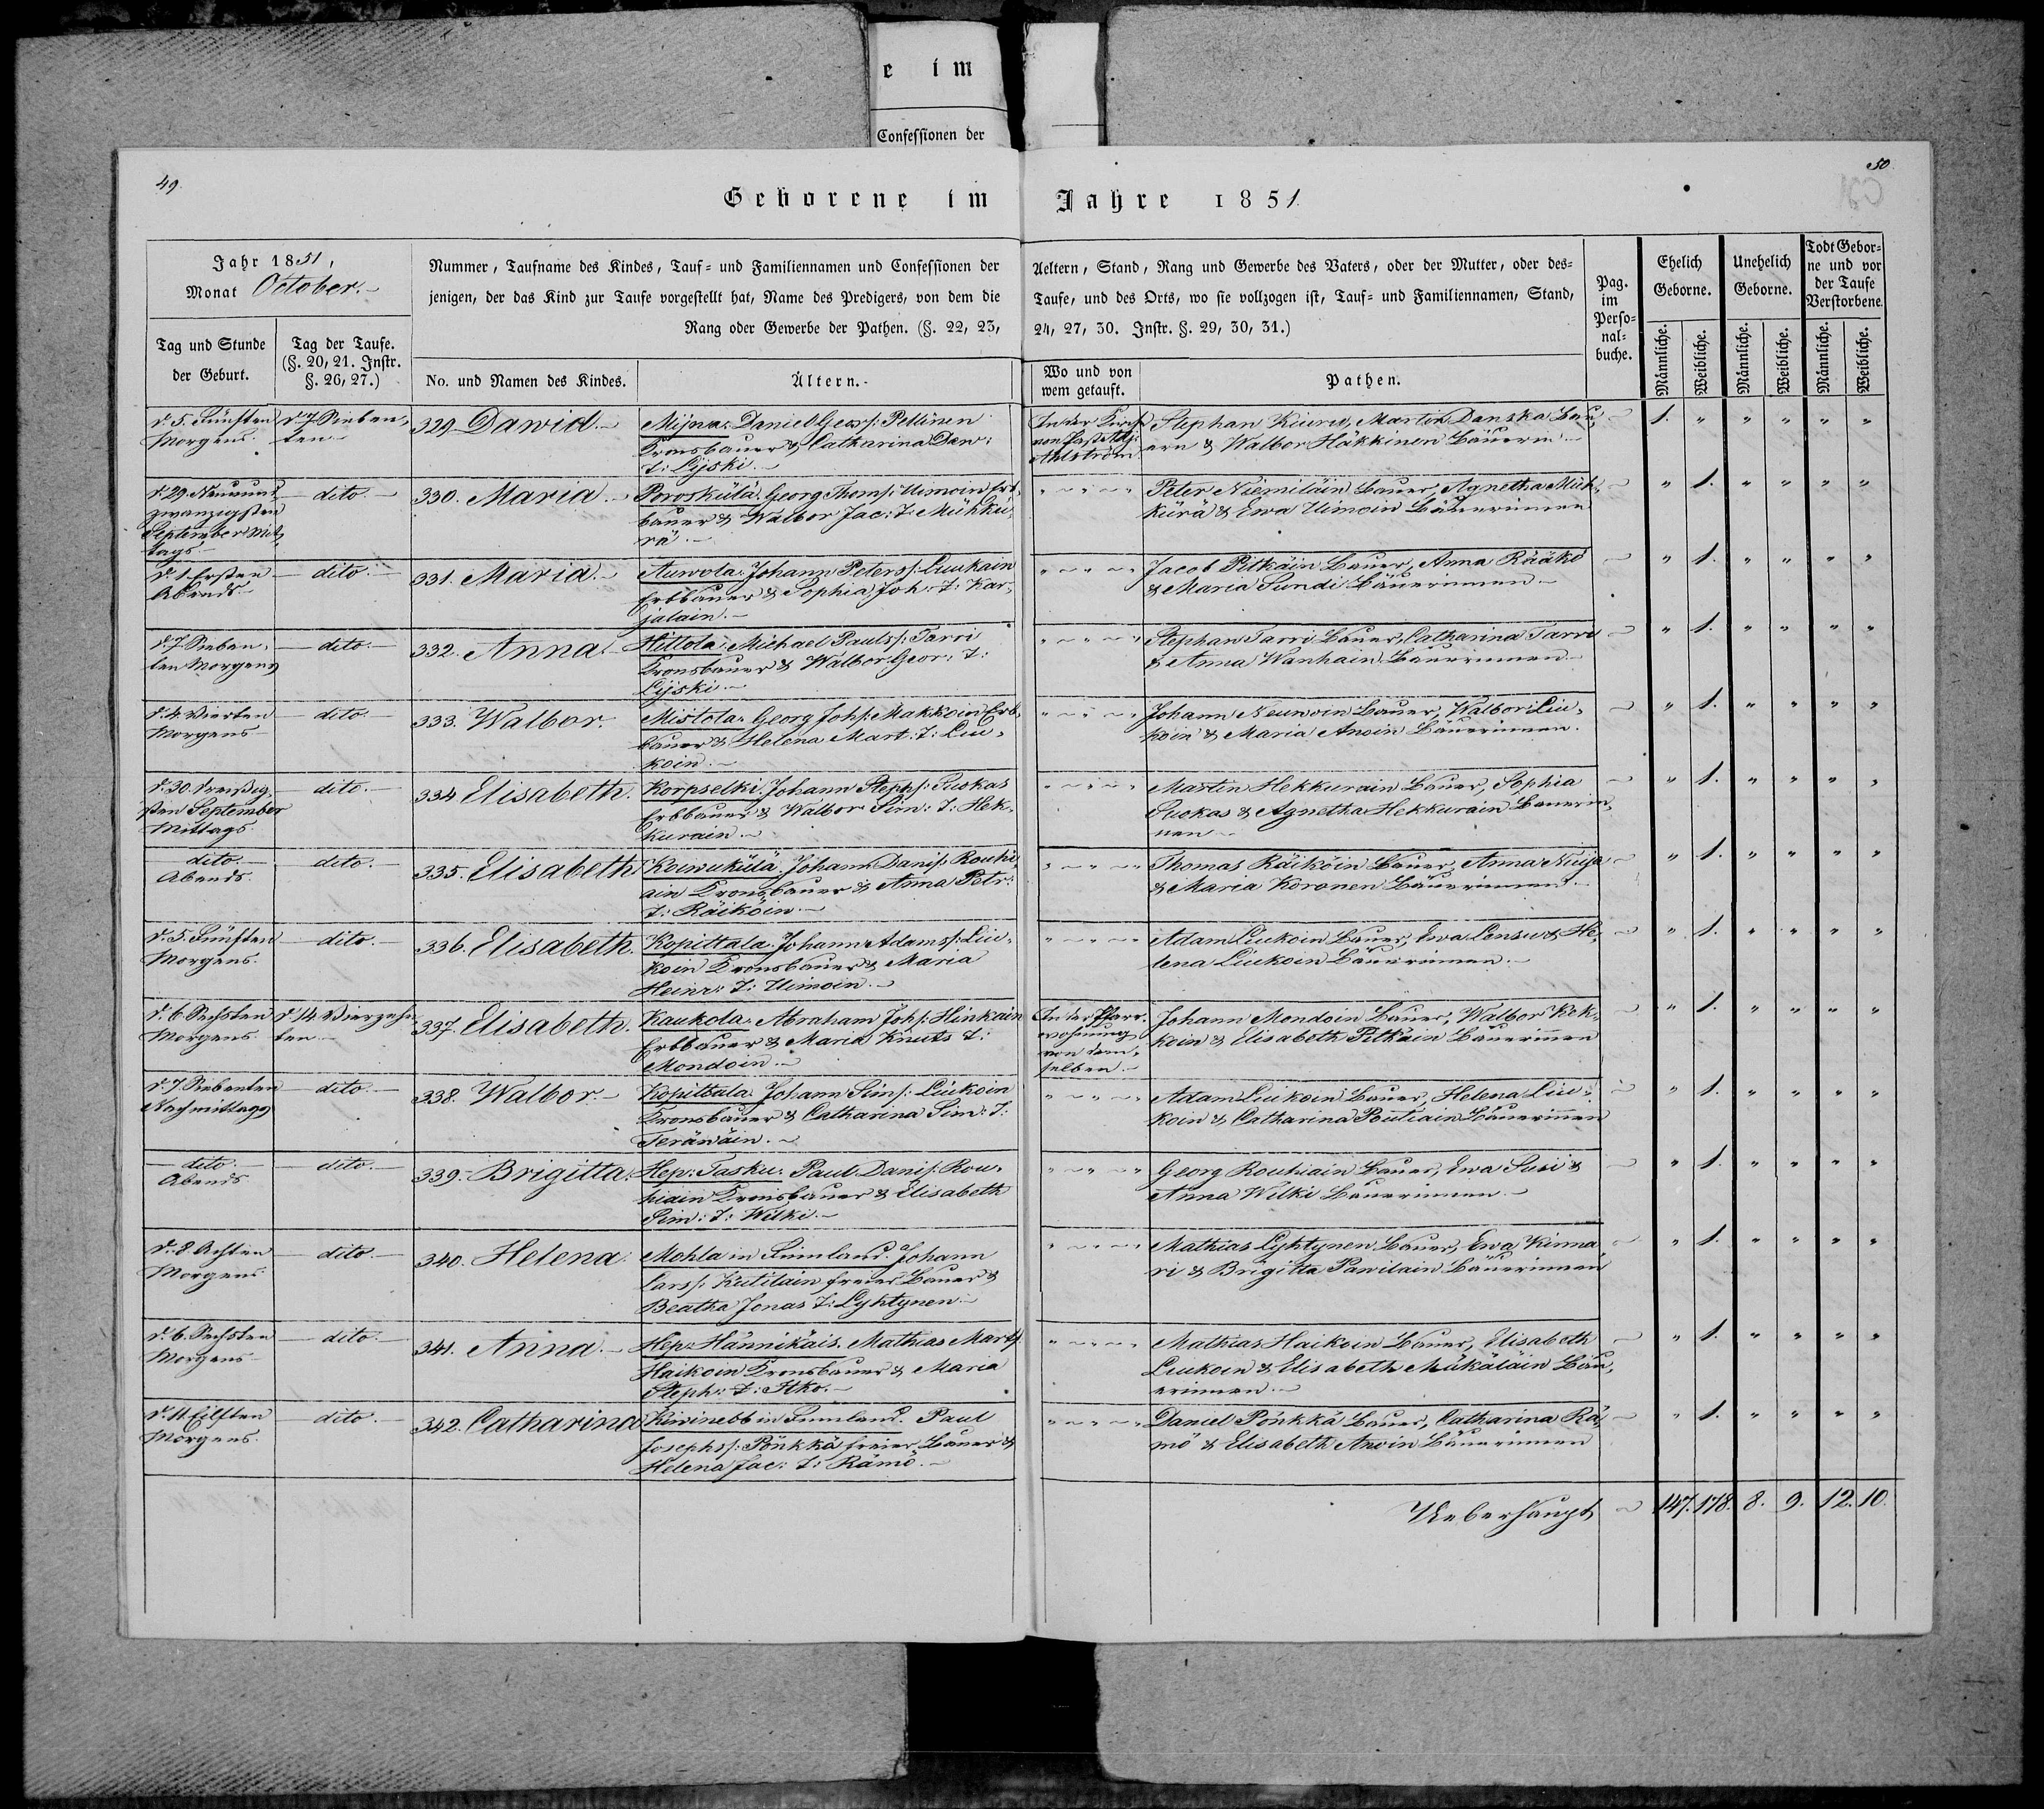 e im
Confessionen der
49.
50.
Geborene im Jahre 1851.
Jahr 1851,
Monat October.
Tag und Stunde
der Geburt.
Tag der Taufe.
(§. 20, 21. Instr.
§. 26, 27.)
Nummer, Taufname des Kindes, Tauf- und Familiennamen und Confessionen der
jenigen, der das Kind zur Taufe vorgestellt hat, Name des Predigers, von dem die
Rang oder Gewerbe der Pathen. (§. 22, 23,
No. und Namen des Kindes.
Ältern.
Aeltern, Stand, Rang und Gewerbe des Vaters, oder der Mutter, oder des-
Taufe, und des Orts, wo sie vollzogen ist, Tauf- und Familiennamen, Stand,
24, 27, 30. Instr. §. 29, 30, 31.)
Wo und von
wem getauft.
Pathen.
Pag.
im
Perso-
nal-
buche.
Ehelich
Geborne.
Unehelich
Geborne.
Todt Gebor-
ne und vor
der Taufe
Verstorbene.
Männliche.
Weibliche.
Männliche.
Weibliche.
Männliche.
Weibliche.
d. 5. Fünften
Morgens.
d. 7. Sieben,
ten
329. Dawid.
Mijna. Daniel Geors: Pellinen
Kronsbauer & Catharina Daw:
T: Lijski.
In der Kirche
von
Ahlström.
Stephan Kiuru, Martin Danska Bau,
ern & Walbor Häkkinen Bäuerin
1. " " " " "
d. 29. Neunund
zwanzigsten
September Mit,
tags.
dito.
330. Maria.
Poroskülä. Georg Thoms: Uimoin Erb,
bauer & Walbor Jac: T: Mühkü,
rä.
" " "
Peter Niemiläin Bauer, Agnetha Müh,
kürä & Ewa Uimoin Bäuerinnen
" 1. " " " "
d. 1. Ersten
Abends.
dito.
331. Maria.
Auwola. Johann Peters: Luukain
Erbbauer & Sophia Joh: T: Kar,
jalain.
" " "
Jacob Pitkäin Bauer, Anna Rääkö
& Maria Sundi Bäuerinnen
" 1. " " " "
d. 7. Sieben,
ten Morgens
dito.
332. Anna.
Hittola. Michael Pauls: Tarri
Kronsbauer & Walbor Geor: T:
Lijski.
" " "
Stephan Tarri Bauer, Catharina Tarri
& Anna Wanhain Bäuerinnen
" 1. " " " "
d. 4. Vierten
Morgens
dito.
333. Walbor.
Mistola. Georg Johs: Makkoin Erb,
bauer & Helena Mart: T: Liu,
koin.
" " "
Johann Neuwoin Bauer, Walbor Liu,
koin & Maria Anoin Bäuerinnen.
" 1. " " " "
d. 30. Dreißig,
sten September
Mittags.
dito.
334. Elisabeth.
Korpselki. Johann Stephs: Suokas
Erbbauer & Walbor Sim: T: Hek,
kurain.
" " "
Martin Hekkurain Bauer, Sophia
Suokas & Agnetha Hekkurain Bäuerin,
nen
" 1. " " " "
dito.
Abends.
dito.
335. Elisabeth.
Koiwukülä. Johann Danis: Rouhi,
ain Kronsbauer & Anna Petr:
T: Räiköin.
" " "
Thomas Räiköin Bauer, Anna Nuija
& Maria Koronen Bäuerinnen.
" 1. " " " "
d. 5. Fünften
Morgens.
dito.
336. Elisabeth.
Kopittala. Johann Adams: Liu,
koin Kronsbauer & Maria
Heinr: T: Uimoin.
" " "
Adam Liukoin Bauer, Ewa Lensu & He,
lena Liukoin Bäuerinnen.
" 1. " " " "
d. 6. Sechsten
Morgens.
d. 14. Vierzehn
ten.
337. Elisabeth.
Kaukola. Abraham Johs: Hinkain
Erbbauer & Maria Knuts T:
Mondoin.
In der Pfarr,
wohnung
von dem,
selben.
Johann Mondoin Bauer, Walbor Kok,
koin & Elisabeth Pitkäin Bäuerinnen
" 1. " " " "
d. 7. Siebenten
Nachmittags
dito.
338. Walbor.
Kopittala. Johann Sims: Liukoin
Kronsbauer & Catharina Sim: T:
Teräwäin.
" " "
Adam Liukoin Bauer, Helena Liu,
koin & Catharina Poutiain Bäuerinnen
" 1. " " " "
dito.
Abends
dito.
339. Brigitta.
Hep: Tasku. Paul Danis: Rou,
hiain Kronsbauer & Elisabeth
Sim: T: Wilki.
" " "
Georg Rouhiain Bauer, Ewa Susi &
Anna Wilki Bäuerinnen
" 1. " " " "
d. 8. Achten
Morgens
dito.
340. Helena.
Mohla in Finnland. Johann
Lars: Kutilain freier Bauer &
Beatha Jonas T: Lyhtynen.
" " "
Mathias Lyhtynen Bauer, Ewa Kinna,
ri & Brigitta Pawilain Bäuerinnen
" 1. " " " "
d. 6. Sechsten
Morgens
dito.
341. Anna.
Hep: Hännikäis. Mathias Marts:
Haikoin Kronsbauer & Maria
Steph: T: Itko.
" " "
Mathias Haikoin Bauer, Elisabeth
Liukoin & Elisabeth Mükäläin Bäu,
erinnen.
" 1. " " " "
d. 11. Eilften
Morgens.
dito.
342. Catharina
Kiwinebb in Finnland. Paul
Josephs: Pönkkä freier Bauer &
Helena Jac: T: Rämö.
" " "
Daniel Pönkkä Bauer, Catharina Rä,
mö & Elisabeth Anoin Bäuerinnen
" 1. " " " "
Ueberhaupt 147. 178. 8. 9. 12. 10.